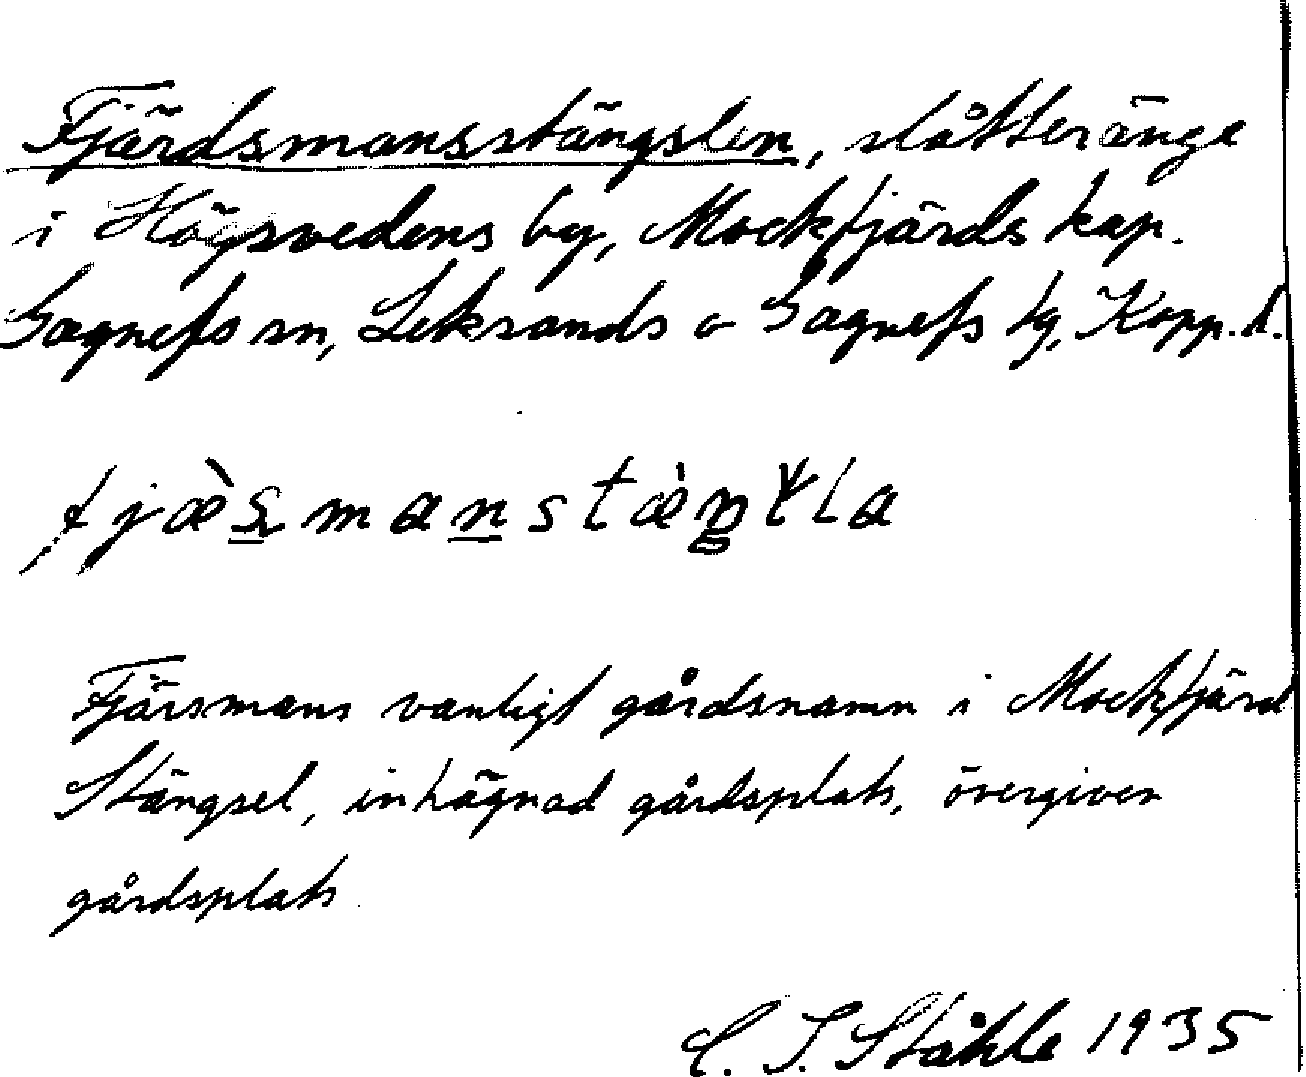 Fjärdsmansstängslen, slåtteränge
i Högsvedens by, Mockfjärds kap.
Gagnefs sn, Leksands o Gagnefs tg, Kopp. l.
fjæ̀s̲man̲stæ̀ŋɬla
Fjärsmans vanligt gårdsnamn i Mockfjärd
Stängsel, inhägnad gårdsplats, övergiven
gårdsplats.
C. I. Ståhle 1935